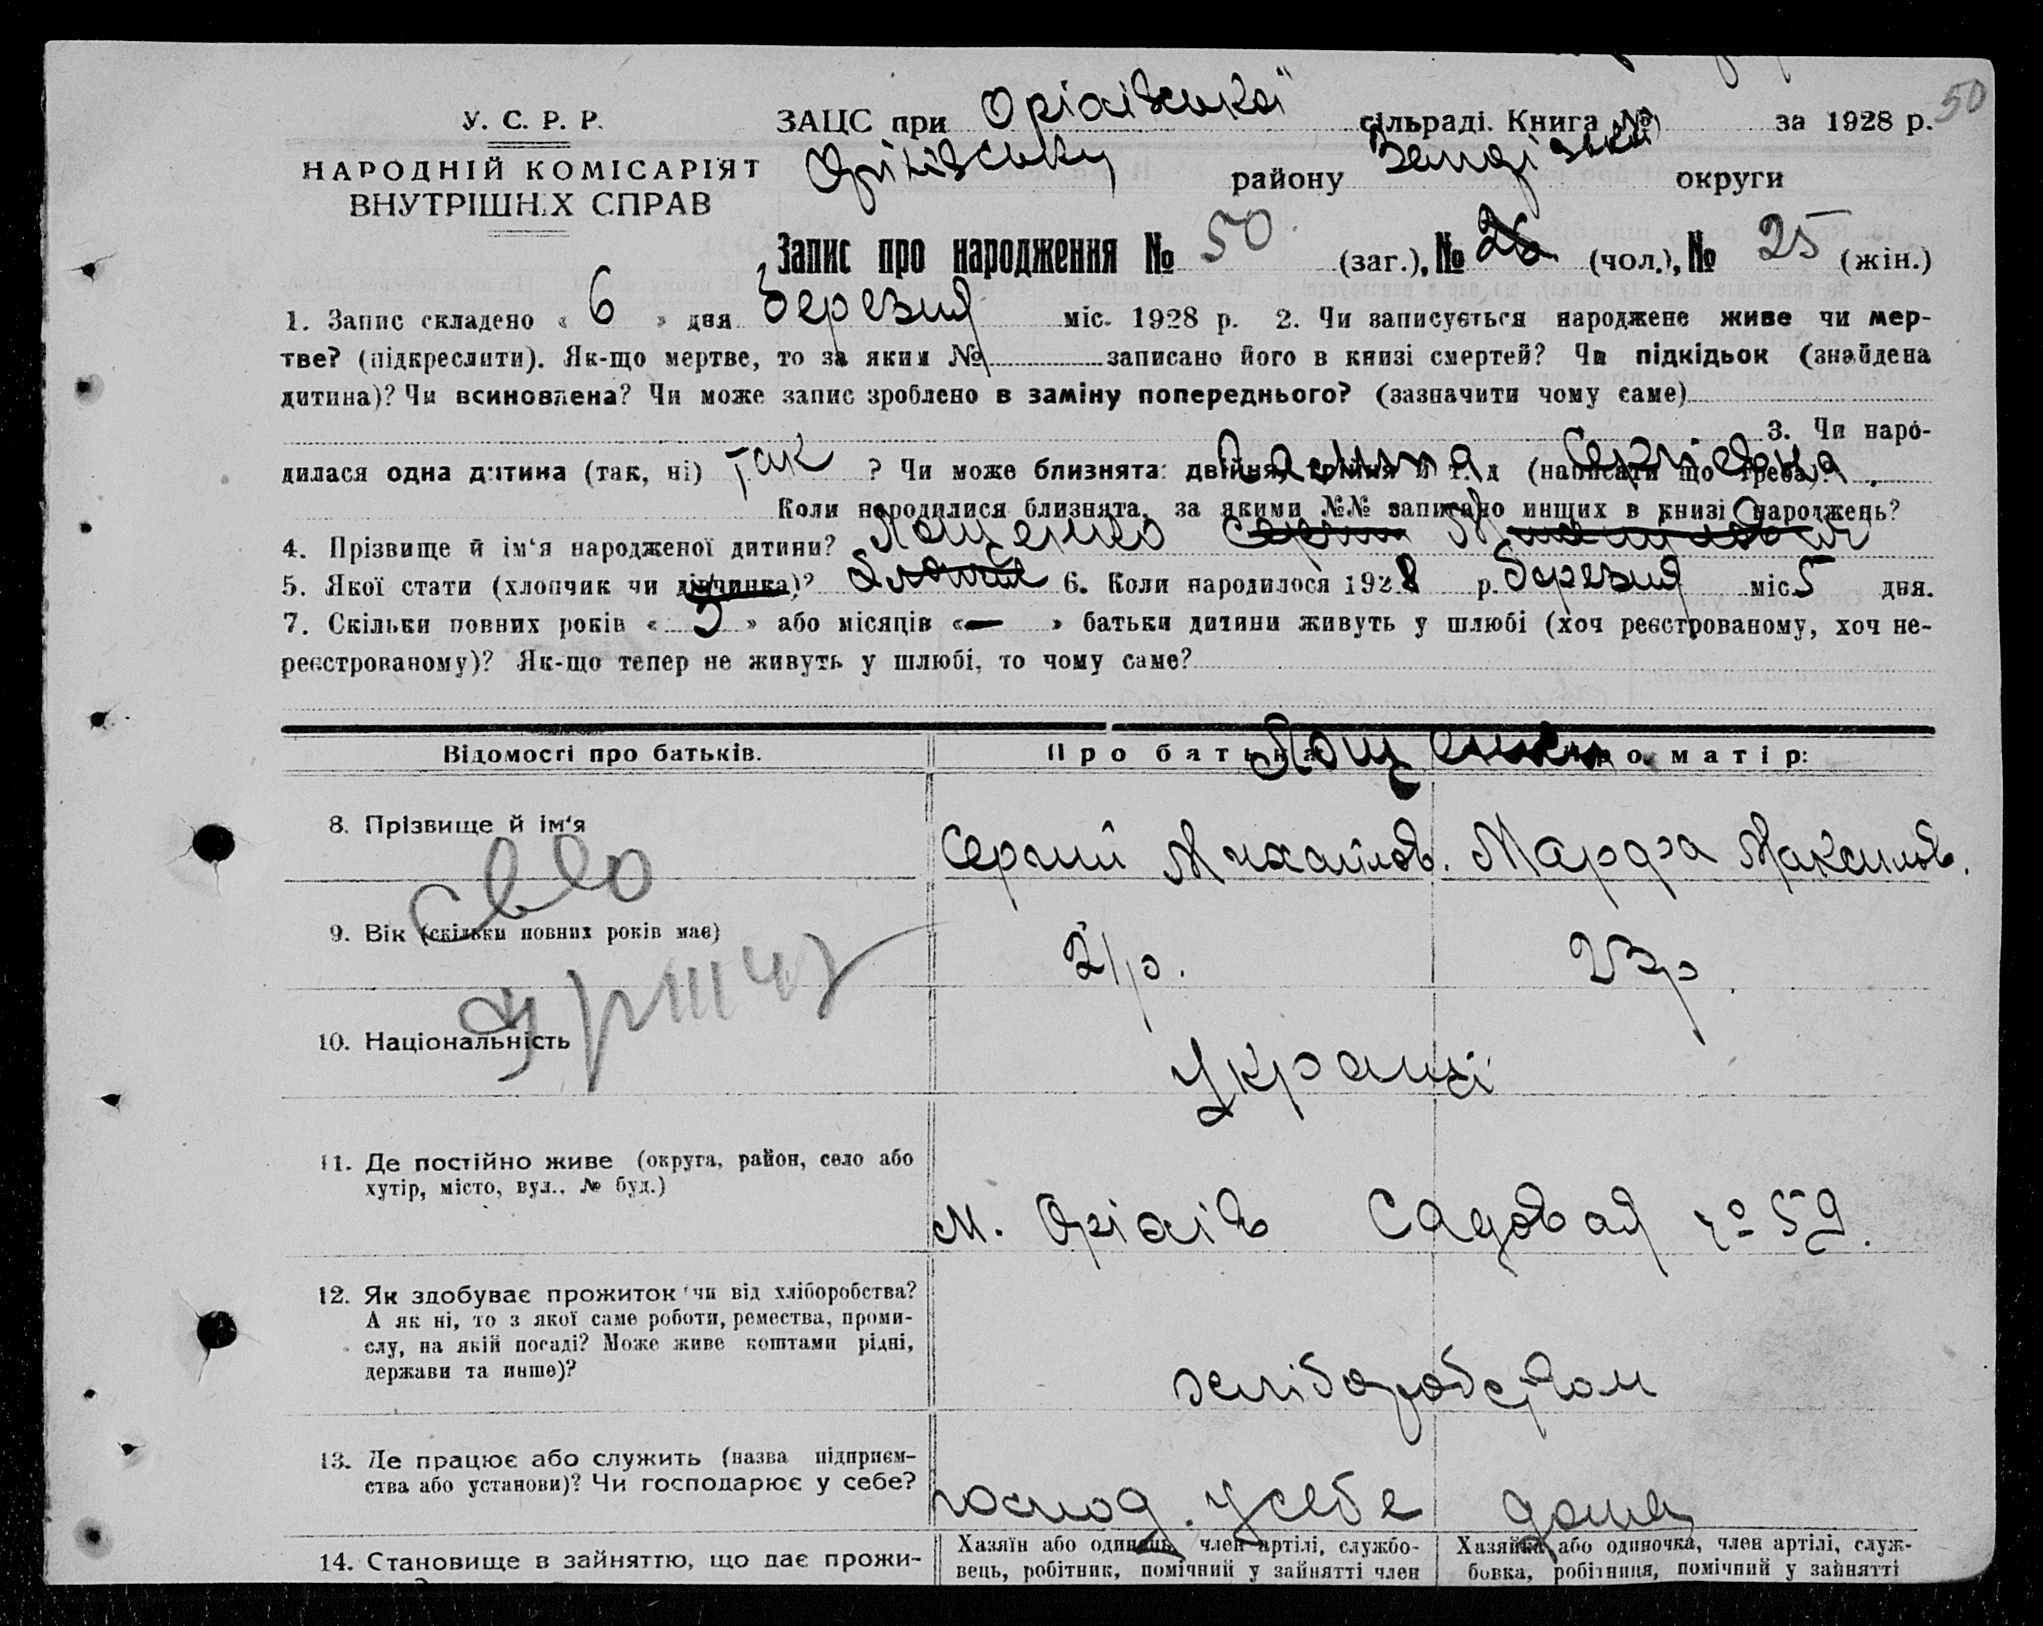 50
У. С. Р. Р.
ЗАЦС при Оріхівській сільраді. Книга № за 1928 р.
НАРОДНІЙ КОМІСАРІЯТ
ВНУТРІШНІХ СПРАВ
Оріхівську району округи
Запис про народження № 50 (заг.), № 26 (чол.), № 25 (жін.)
1. Запис складено « 6 » дня березня міс. 1928 р. 2. Чи записується народжене живе чи мер-
тве? (підкреслити). Як-що мертве, то за яким № записано його в книзі смертей? Чи підкідьок (знайдена
дитина)? Чи всиновлена? Чи може запис зроблено в заміну попереднього? (зазначити чому саме)
3. Чи наро-
дилася одна дитина (так, ні) так ? Чи може близнята: двійня, трійня й т. д (написати що треба)?
Сергієвна
Коли народилися близнята, за якими №№ записано инщих в книзі народжень?
4. Прізвище й ім'я народженої дитини? Лощенко
5. Якої стати (хлопчик чи дівчинка)? 6. Коли народилося 1928 р. березня міс. 5 дня.
7. Скільки повних років « 3 » або місяців « — » батьки дитини живуть у шлюбі (хоч реєстрованому, хоч не-
реєстрованому)? Як-що тепер не живуть у шлюбі, то чому саме?
Відомості про батьків. Про батька Про матір:
Лощенки
8. Прізвище й ім'я Сергий Михайлов. Марфа Максимов.
9. Вік (скільки повних років має) 21р. 23р.
10. Національність Українці
11. Де постійно живе (округа, район, село або
хутір, місто, вул., № буд.)
м. Оріхів Садовая № 59.
12. Як здобуває прожиток чи від хліборобства?
А як ні, то з якої саме роботи, ремества, проми-
слу, на якій посаді? Може живе коштами рідні,
держави та инше)?
хліборобством
13. Де працює або служить (назва підприєм-
ства або установи)? Чи господарює у себе?
господ. у себе дома
14. Становище в зайняттю, що дає прожи-
Хазяїн або одинець, член артілі, службо-
вець, робітник, помічний у зайнятті член
Хазяйка або одиночка, член артілі, служ-
бовка, робітниця, помічний у зайнятті